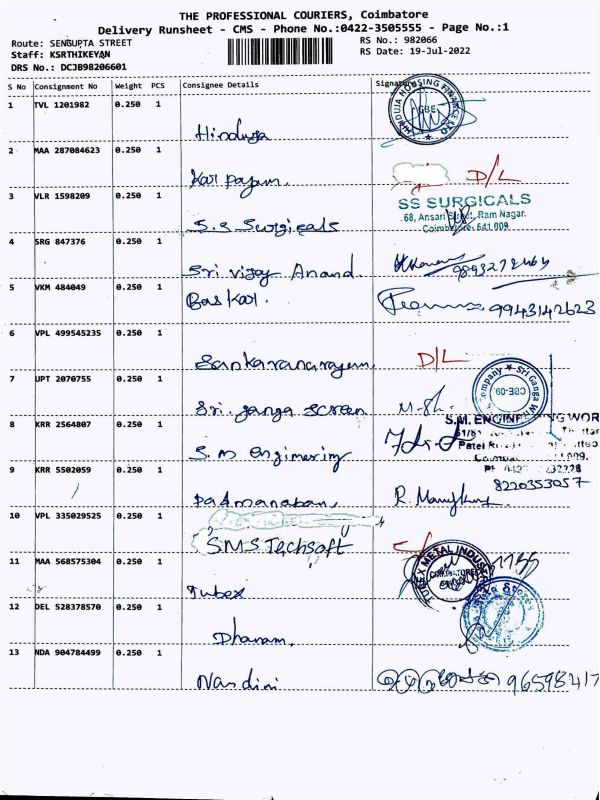 THE PROFESSIONAL COURIERS, Coimbatore
Delivery Runsheet - CMS - Phone No.:0422-3505555 - Page No.:1
Route: SENGUPTA STREET
RS No.: 982066
Staff: KSRTHIKEYAN
RS Date: 19-Jul-2022
DRS No.: DCJB98206601
S No Consignment No Weight PCS Consignee Details Signature
1 TVL 1201982 0.250 1 Hinduja HINDUJA HOUSING FINANCE LTD CBE
2 MAA 287084623 0.250 1 Karpagam. D/L
3 VLR 1598209 0.250 1 S.S Surgicals
SS SURGICALS
68, Ansari Street, Ram Nagar.
Coimbatore- 641 009.
4 SRG 847376 0.250 1 Sri Vijay Anand
5 VKM 484049 0.250 1 Baskar. 9943142623
6 VPL 499545235 0.250 1 Sankaranarayanan. D/L
7 UPT 2070755 0.250 1 Sri. ganga screen Sri Ganga CBE-09.
8 KRR 2564807 0.250 1 S.m engineering
S.M. ENGINEERING WOR
8220353057
9 KRR 5502059 0.250 1 Padmanaban,
10 VPL 335029525 0.250 1 SMS Techsoft
11 MAA 568575304 0.250 1 Tubex TUBEX METAL INDUSTR
12 DEL 528378570 0.250 1 Dhanam.
13 NDA 904784499 0.250 1 Nandini